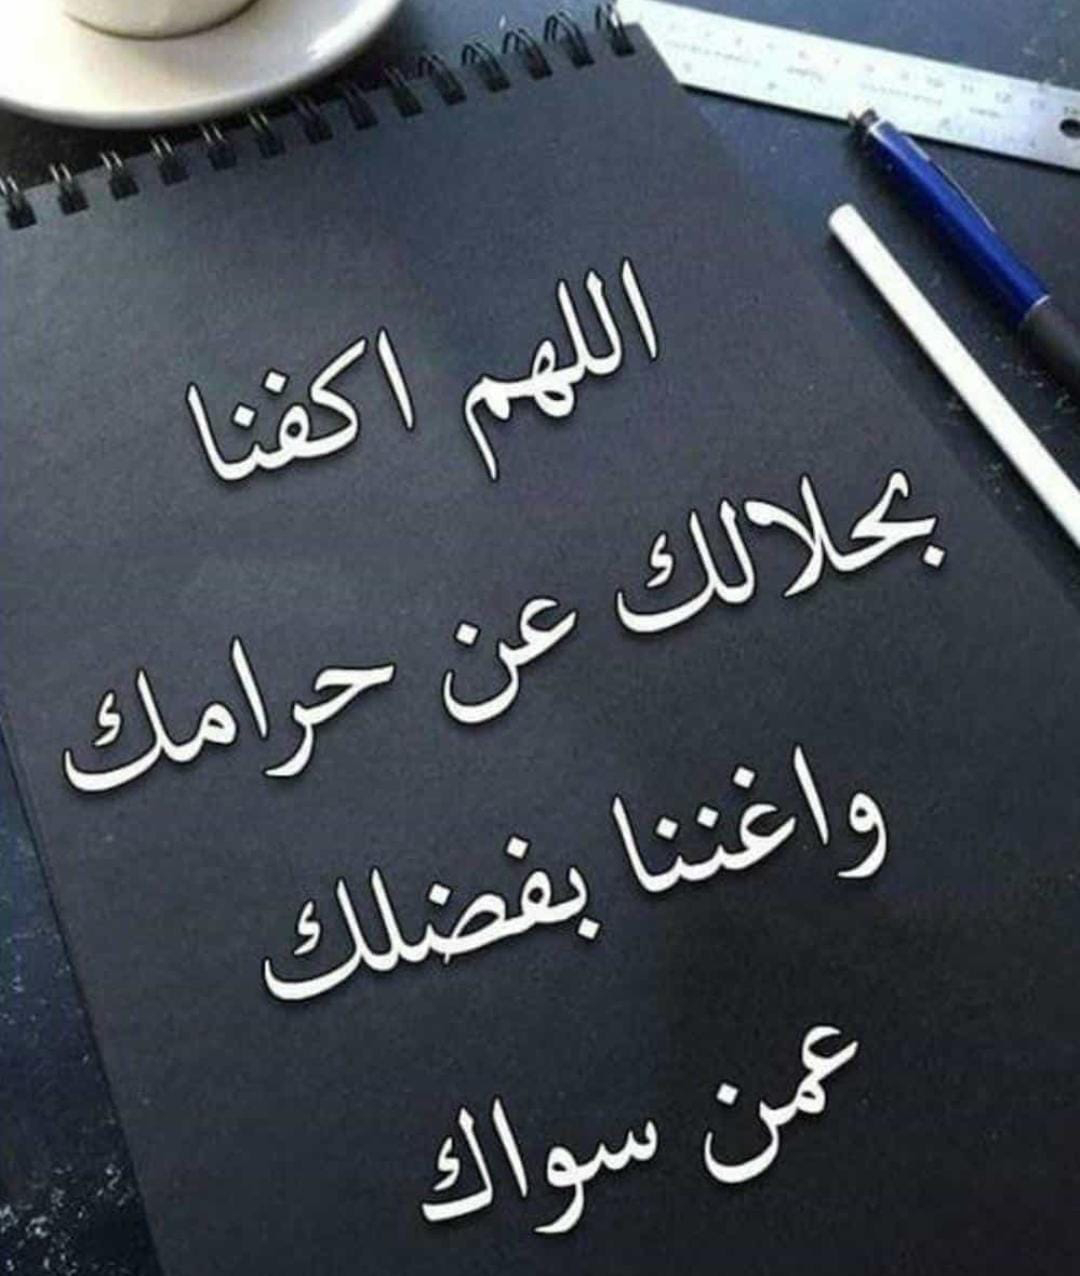 اللهم اكفنا
بحلالك عن حرامك
واغننا بفضلك
عمن سواك